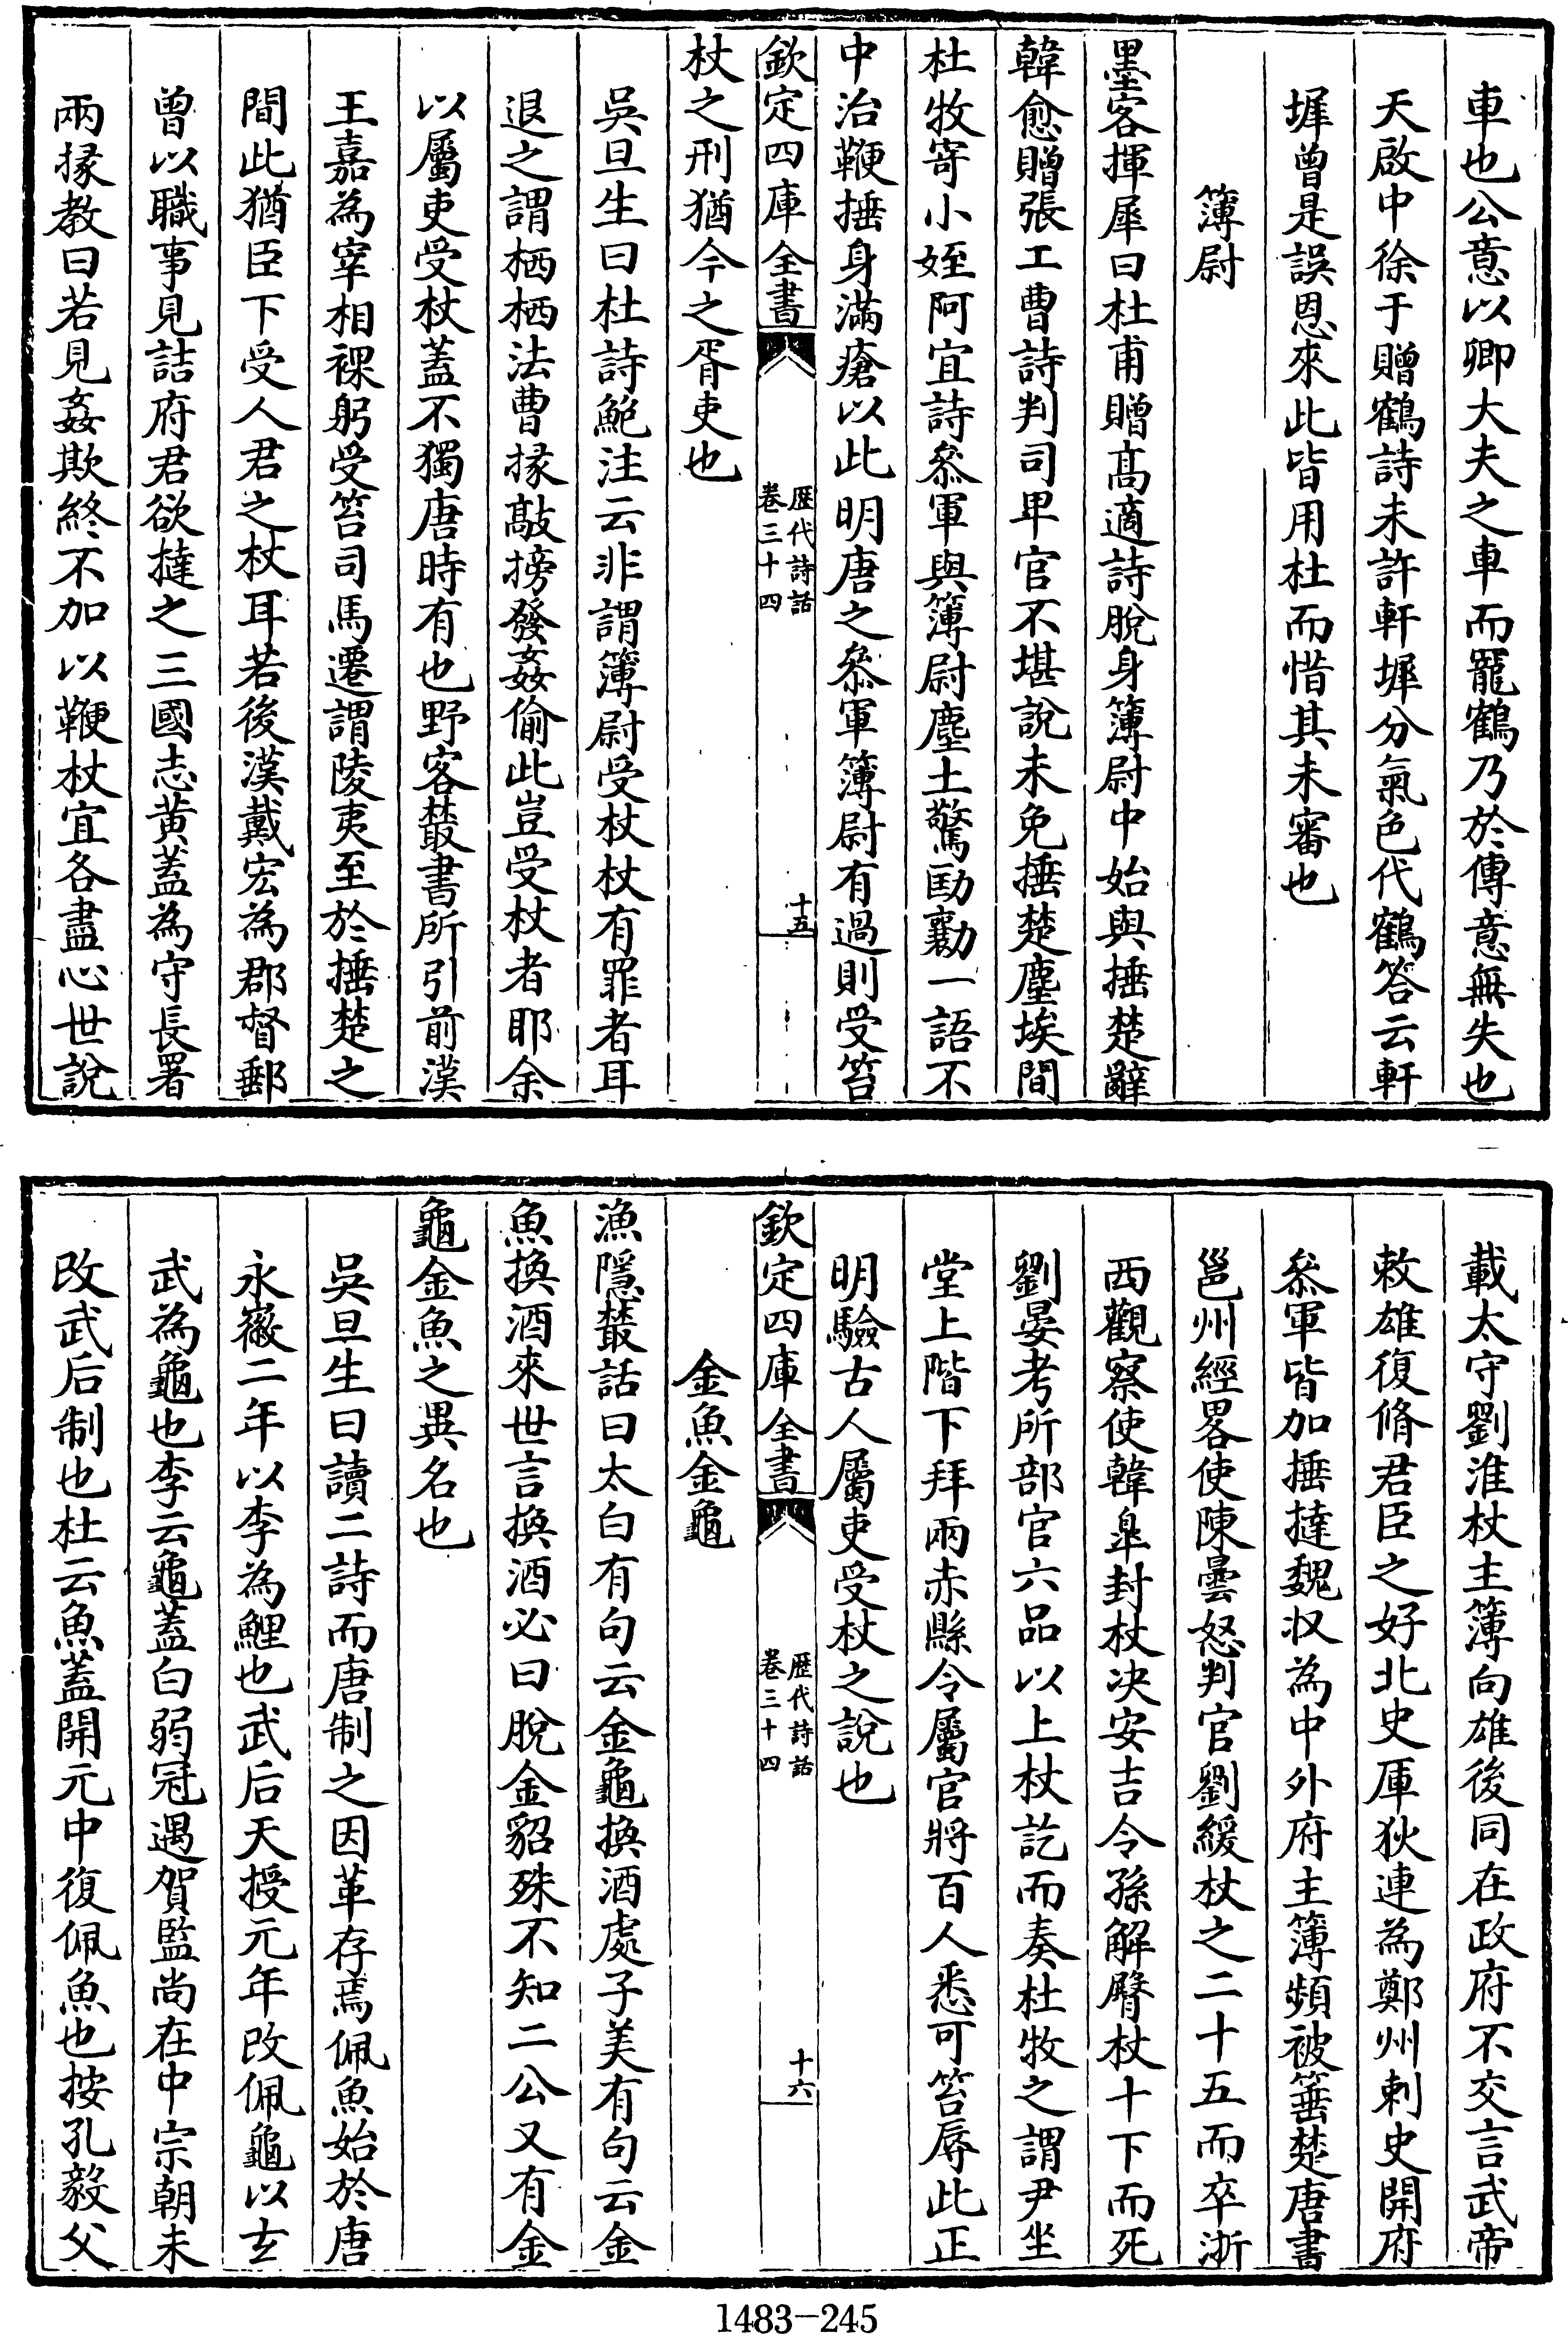 車也公意以卿大夫之車而罷鶴乃於傳意無失也
天啟中徐于贈鶴詩未許軒墀分氣色代鶴答云軒
墀曾是誤恩來此皆用杜而惜其未審也
簿尉
墨客揮犀曰杜甫贈髙適詩脫身簿尉中始與捶楚辭
韓愈贈張工曹詩判司卑官不堪說未免捶楚塵埃間
杜牧寄小姪阿宜詩叅軍與簿尉塵土驚劻勷一語不
中治鞭捶身滿瘡以此明唐之叅軍簿尉有過則受笞
欽定四庫全書
歴代詩話
卷三十四
十五
杖之刑猶今之胥吏也
吳旦生曰杜詩鮑注云非謂簿尉受杖杖有罪者耳
退之謂栖栖法曹掾敲搒發姦偷此豈受杖者耶余
以屬吏受杖蓋不獨唐時有也野客叢書所引前漢
王嘉為宰相裸躬受笞司馬遷謂陵夷至於捶楚之
間此猶臣下受人君之杖耳若後漢戴宏為郡督郵
曾以職事見詰府君欲撻之三國志黃蓋為守長署
兩掾教曰若見姦欺終不加以鞭杖宜各盡心世說
載太守劉淮杖主簿向雄後同在政府不交言武帝
敕雄復脩君臣之好北史厙狄連為鄭州刺史開府
叅軍皆加捶撻魏收為中外府主簿頻被箠楚唐書
邕州經畧使陳曇怒判官劉緩杖之二十五而卒浙
西觀察使韓臯封杖决安吉令孫解臀杖十下而死
劉晏考所部官六品以上杖訖而奏杜牧之謂尹坐
堂上階下拜兩赤縣令屬官將百人悉可笞辱此正
明驗古人屬吏受杖之說也
欽定四庫全書
歴代詩話
卷三十四
十六
金魚金龜
漁隱叢話曰太白有句云金龜換酒處子美有句云金
魚換酒來世言換酒必曰脫金貂殊不知二公又有金
龜金魚之異名也
吳旦生曰讀二詩而唐制之因革存焉佩魚始於唐
永徽二年以李為鯉也武后天授元年改佩龜以玄
武為龜也李云龜蓋白弱冠遇賀監尚在中宗朝未
改武后制也杜云魚蓋開元中復佩魚也按孔毅父
1483-245